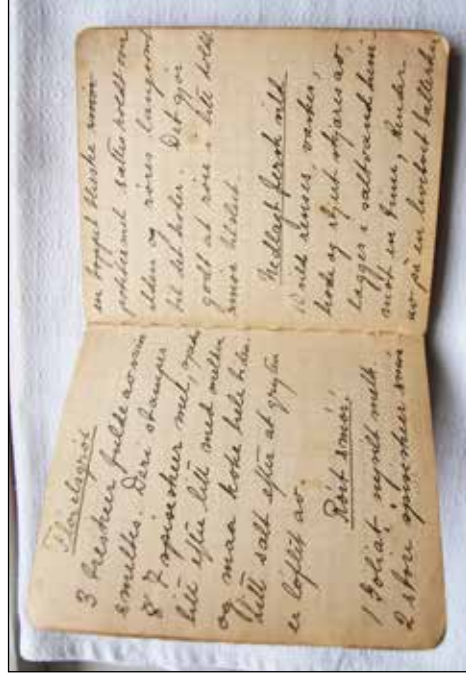 Fløielsgrøt
3 træskeer fulde av smør
smeltes. Deri stampes
8 7 spiseskeer mel, spædes
litt efter litt med melken
og maa koke hele tiden.
litt salt efter at gryten
er løftet av.
Rørt smør:
1 Goliat nysilt melk
2 store spiseskeer smør
en toppet theske
potetmel sættes koldt over
ilden og røres langsomt
til det koker. Det gjør
godt at røre i litt koldt
smør tilslut.
Nedlagt fersk sild
10 sild renses, vaskes,
hode og skjæres av,
lægges i saltvand
mot en time, Render
av på en